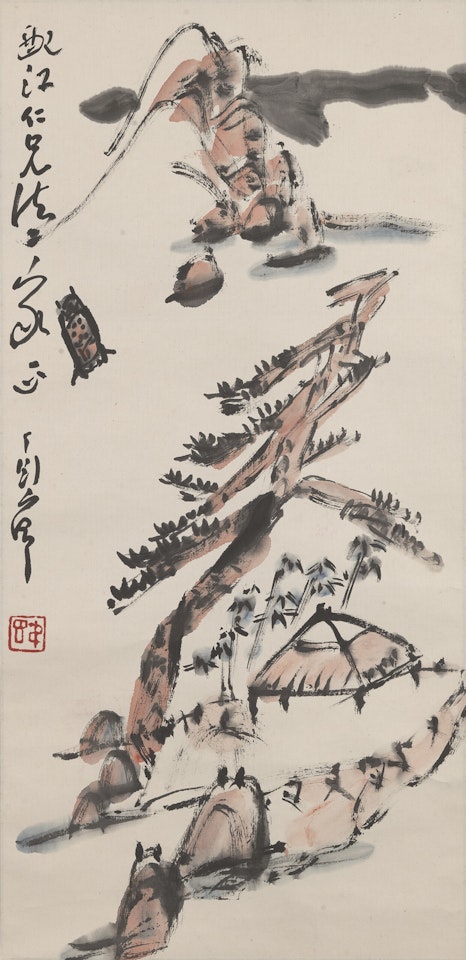 江仁兄法家正
丁衍庸